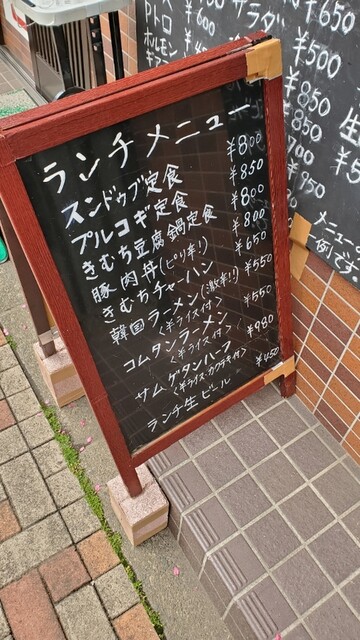 ランチメニュー
スンドゥブ定食 ¥800
プルコギ定食 ¥850
きむち豆腐鍋定食 ¥800
豚肉丼(ピリ辛!) ¥800
きむちチャーハン ¥650
韓国ラーメン(激辛!!) ¥550
<半ライス付>
コムタンラーメン ¥550
<半ライス付>
サムゲタンハーフ ¥980
<半ライス・カクテキ付>
ランチ生ビール ¥450
トロ ¥600
ホルモン
サラダ
¥500
¥850
¥850
¥700
¥950
生
メニュー